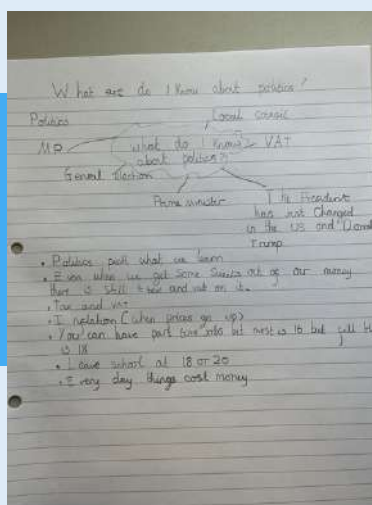 What are do I Know about politics?
Politics
Local council
MP
what do I Know
VAT
about politics?
General Election
Prime minister
The President
has Just Changed
in the US and Donald
Trump
• Politics what we learn
• Even when we get some Sweets out of our money
there is still tax and vat on it.
• Tax and VAT
• Inflation (when prices go up)
• You can have part time jobs but most is 16 but full
is 18
• Leave school at 18 or 20
• Every day things cost money